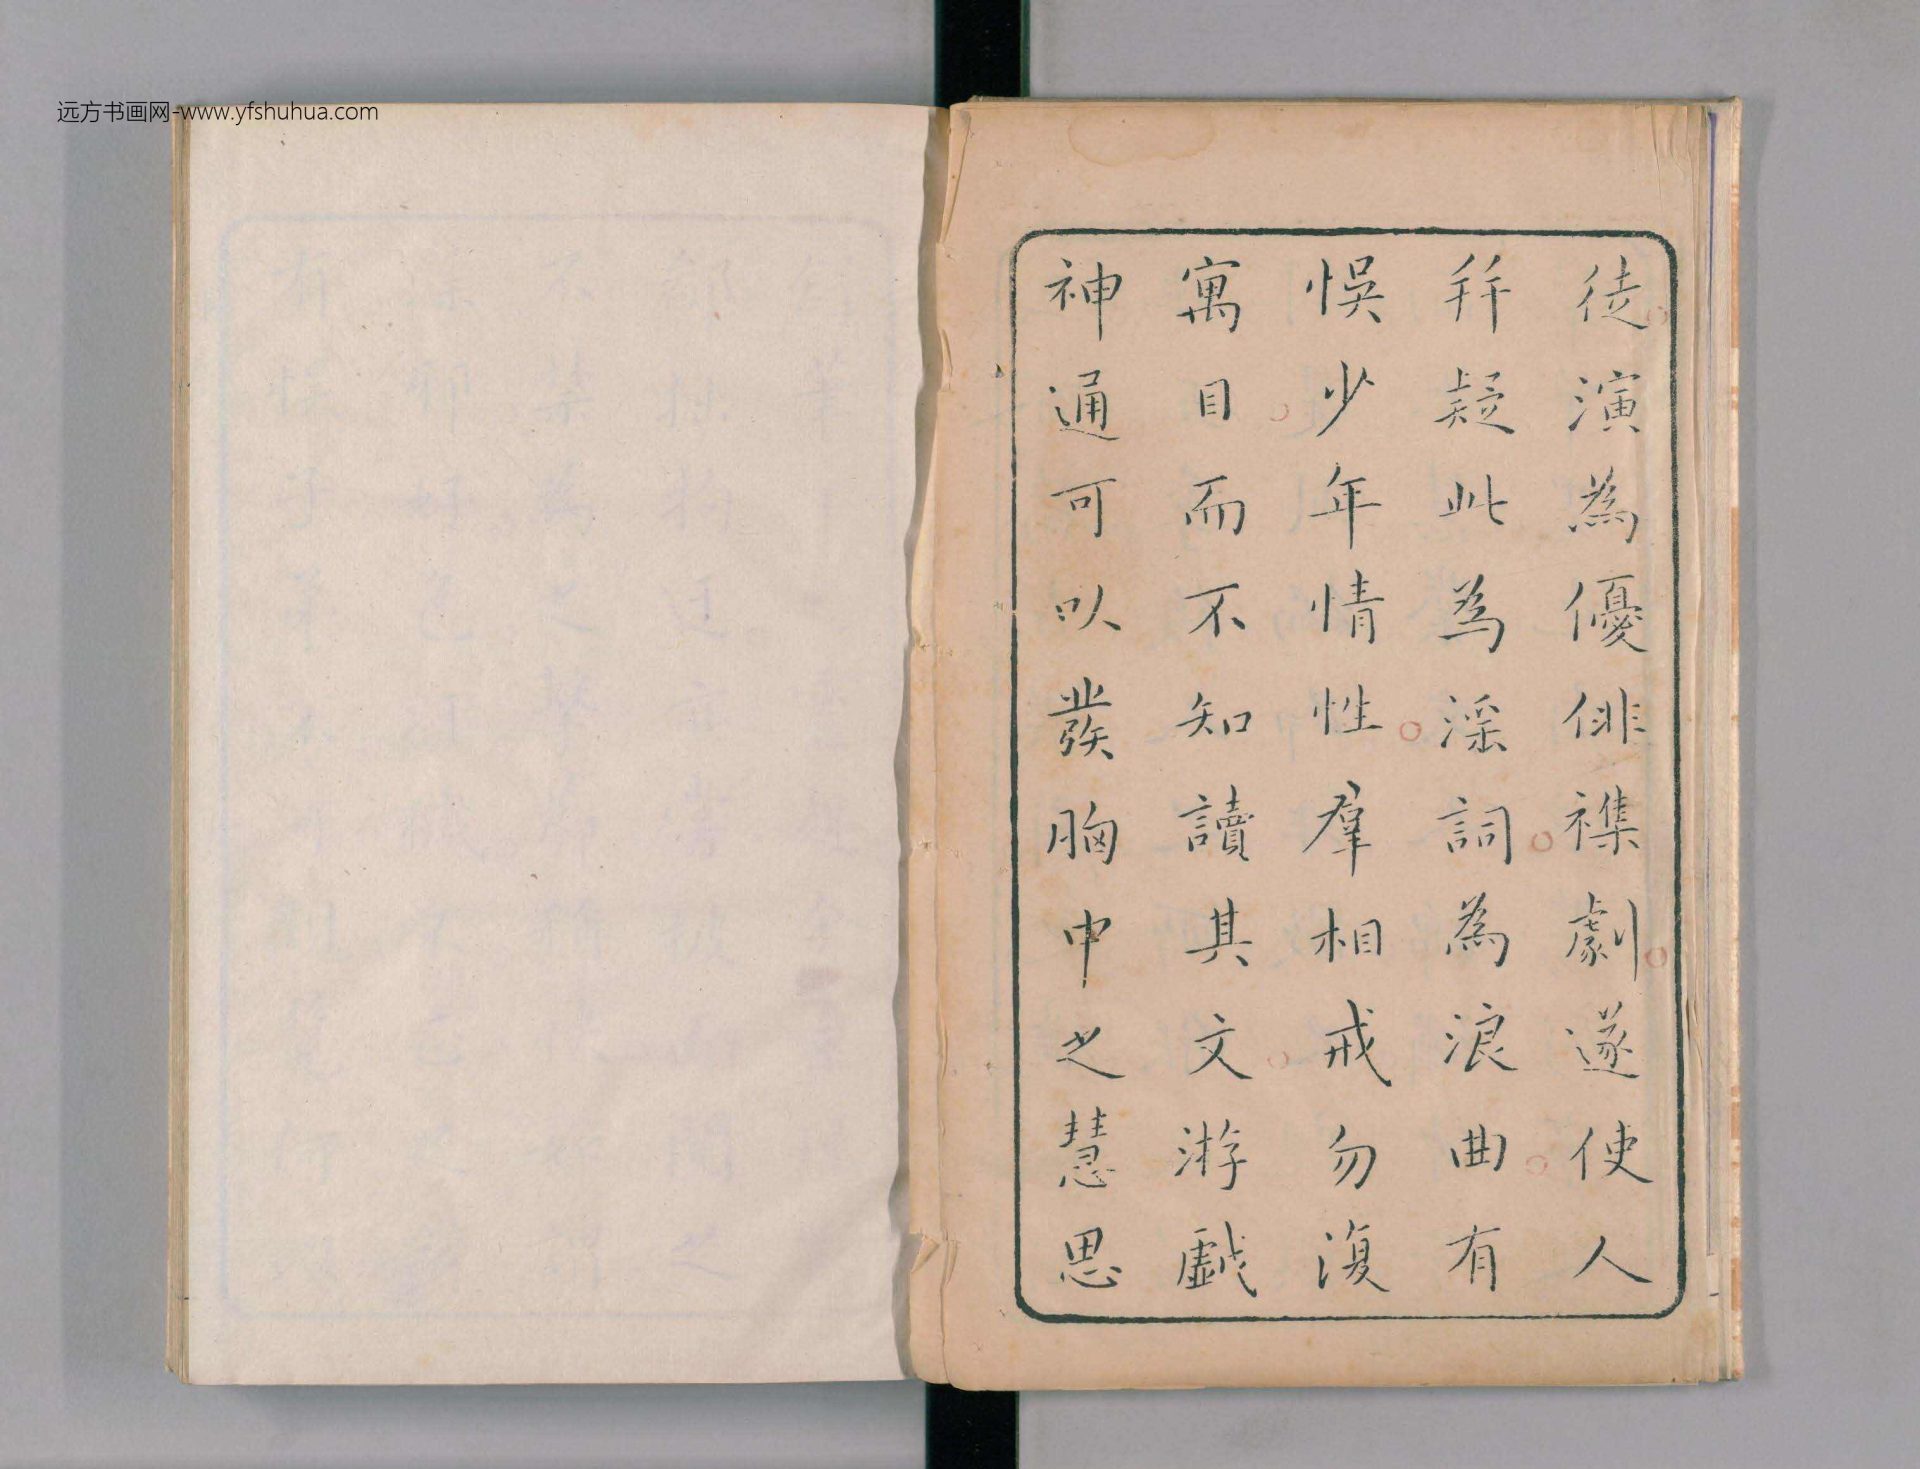 远方书画网-www.yfshuhua.com
徒演為優俳襍劇遂使人
幷疑此為淫詞為浪曲有
悞少年情性羣相戒勿復
寓目而不知讀其文游戲
神通可以發胸中之慧思